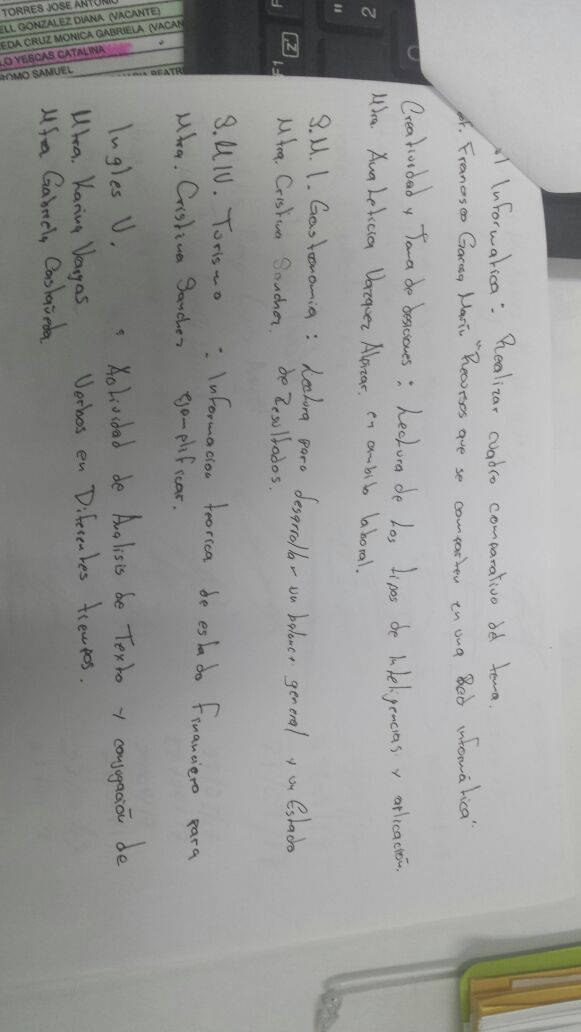 TORRES JOSE ANTONIO
ELL GONZALEZ DIANA (VACANTE)
EDA CRUZ MONICA GABRIELA (VACAN
LO YESCAS CATALINA
ROMO SAMUEL
BEATR
F1
Z
"
2
Informatica: Realizar cuadro comparativo del tema.
Francisco Garcia Marin "Recursos que se comparten en una Red informática".
Creatividad y Toma de Desiciones: Lectura de Los tipos de Inteligencias y aplicación.
Mtra. Analeticia Vazquez Alpizar. en ambito laboral.
S.M.I. Gastronomia: Lectura para desarrollar un balance general y un Estado
Mtra. Cristina Sanchez. de Resultados.
S.M IV. Turismo: Informacion teorica de estado Financiero para
Mtra. Cristina Sanchez ejemplificar.
Ingles V. : Actividad de Analisis de Texto y conjugación de
Mtra. Karina Vargas. Verbos en Diferentes tiempos.
Mtra Gabriela Castañeda.